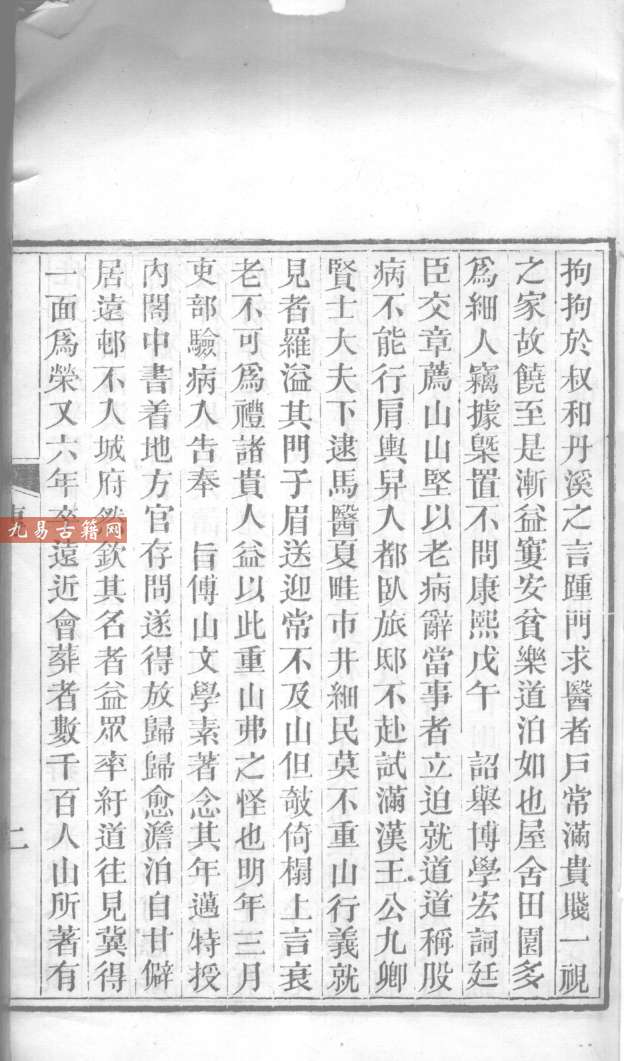 拘拘於叔和丹溪之言踵門求醫者戶常滿貴賤一視
之家故饒至是漸益窶安貧樂道泊如也屋舍田園多
爲細人竊據槩置不問康熙戊午 詔舉博學宏詞廷
臣交章薦山山堅以老病辭當事者立迫就道道稱股
病不能行肩輿舁入都臥旅邸不赴試滿漢王公九卿
賢士大夫下逮馬醫夏畦市井細民莫不重山行義就
見者羅溢其門子眉送迎常不及山但攲倚榻上言衰
老不可爲禮諸貴人益以此重山弗之怪也明年三月
吏部驗病入告奉 旨傅山文學素著念其年邁特授
內閣中書着地方官存問遂得放歸歸愈澹泊自甘僻
居遠邨不入城府欽其名者益眾率紆道往見冀得
一面爲榮又六年遠近會葬者數千百人山所著有
二
九易古籍网